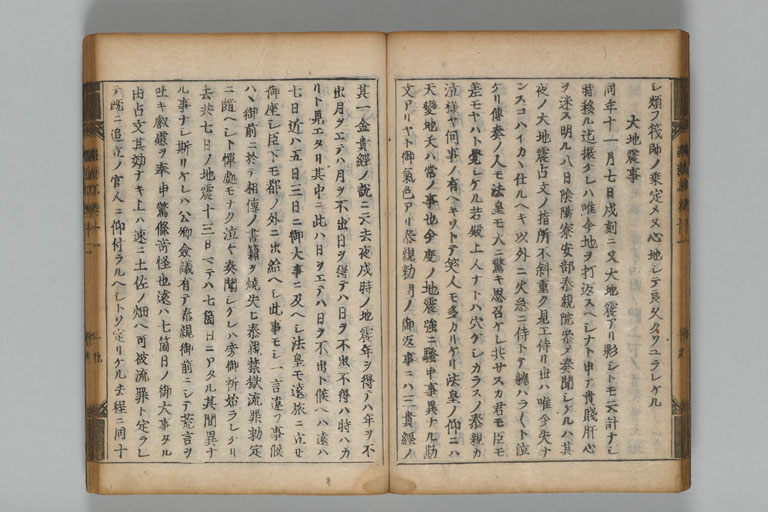 シ類フ筏師ノ乗定メヌ心地シテ良久クワユラレケル
大地震事
同年十一月七日戌刻ニ又大地震アリ影シトモ云計ナシ
時移ル迄振ケレハ唯今地ヲ打返スヘシナト申テ貴賤肝心
ヲ迷ス明ル八日陰陽寮安部泰親院参ノ奏聞シケルハ其
夜ノ大地震占文ノ指所不斜重ク見エ侍リ世ハ唯今失ナ
ンスコハイカヽ仕ルヘキ以外ニ火急ニ侍トテ軈ハラ〳〵ト泣
ケリ傳奏ノ人モ法皇モ大ニ驚キ思召ケレ共サスカ君モ臣モ
差モヤハト覺シケル若殿上人ナトハ穴ケシカラスノ泰親カ
泣様ヤ何事ノ有ヘキソトテ笑人モ多カリケリ法皇ノ仰ニハ
天變地夭ハ常ノ事也今度ノ地震強ニ騒申事異ナル勘
文アリヤト御氣色アリ泰親勅問ノ御返事ニハ三貴經ノ
其一金貴經ノ説ニ云去夜戌時ノ地震年ヲ得ノハ年ヲ不
出月ヲエテハ月ヲ不出日ヲ得テハ日ヲ不出不得ハ時ハカ
リト見エタリ其中ニ此ハ日ヲエテハ日ヲ不出ト候ヘハ遠ハ
七日近ハ五日三日ニ御大事ニ及ヘシ法皇モ遠旅ニ立セ
御座シ臣下モ都ノ外ニ出給ヘシ此事モシ一言違フ事候
ハヽ御前ニ於テ相傳ノ書籍ヲ焼失ヒ泰親禁獄流罪勅定
ニ隨ヘシト憚處モナク泣々奏聞シケレハ旁御祈始ラレケリ
去共七日ノ地震十三日マテハ七箇日ニアタル其間異ナ
ル事ナシ斯リケレハ公卿僉議有テ泰親御前ニシテ荒言ヲ
吐キ叡慮ヲ奉申驚條奇怪也遠ハ七箇日ノ御大事タル
由占文其効ナキ上ハ速ニ土佐ノ畑ヘ可被流罪ト定ラレ
テ既ニ追立ノ官人ニ仰付ラルヘシトソ定リケル去程ニ同十